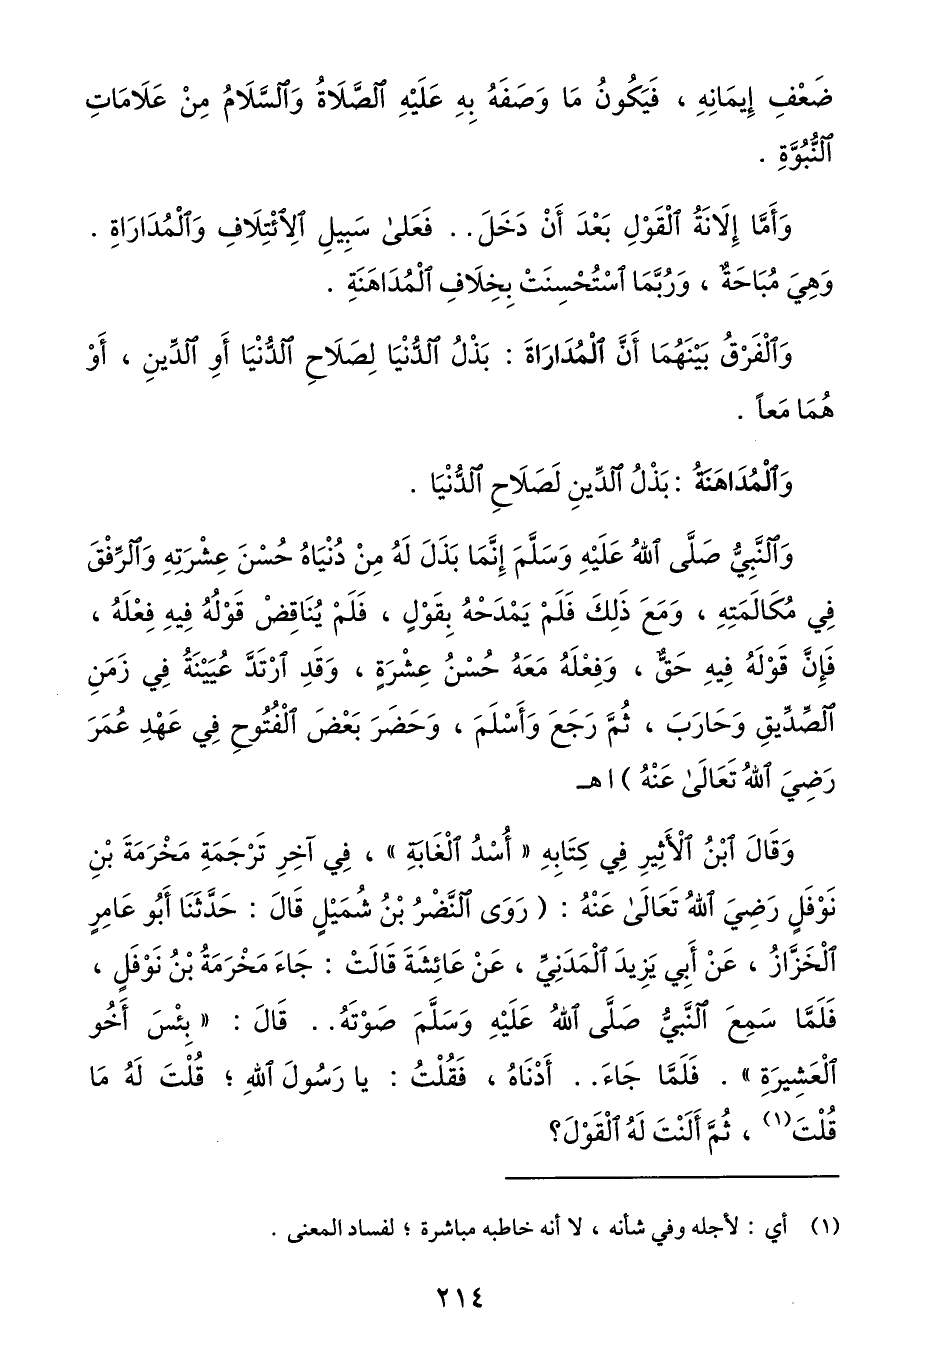 ضَعْفِ إِيمَانِهِ ، فَيَكُونُ مَا وَصَفَهُ بِهِ عَلَيْهِ ٱلصَّلَاةُ وَٱلسَّلَامُ مِنْ عَلَامَاتِ
ٱلنُّبُوَّةِ .
وَأَمَّا إِلَانَةُ ٱلْقَوْلِ بَعْدَ أَنْ دَخَلَ .. فَعَلَىٰ سَبِيلِ ٱلِٱئْتِلَافِ وَٱلْمُدَارَاةِ .
وَهِيَ مُبَاحَةٌ ، وَرُبَّمَا ٱسْتُحْسِنَتْ بِخِلَافِ ٱلْمُدَاهَنَةِ .
وَٱلْفَرْقُ بَيْنَهُمَا أَنَّ ٱلْمُدَارَاةَ : بَذْلُ ٱلدُّنْيَا لِصَلَاحِ ٱلدُّنْيَا أَوِ ٱلدِّينِ ، أَوْ
هُمَا مَعاً .
وَٱلْمُدَاهَنَةُ : بَذْلُ ٱلدِّينِ لَصَلَاحِ ٱلدُّنْيَا .
وَٱلنَّبِيُّ صَلَّى ٱللهُ عَلَيْهِ وَسَلَّمَ إِنَّمَا بَذَلَ لَهُ مِنْ دُنْيَاهُ حُسْنَ عِشْرَتِهِ وَٱلرِّفْقَ
فِي مُكَالَمَتِهِ ، وَمَعَ ذَلِكَ فَلَمْ يَمْدَحْهُ بِقَوْلٍ ، فَلَمْ يُنَاقِضْ قَوْلُهُ فِيهِ فِعْلَهُ ،
فَإِنَّ قَوْلَهُ فِيهِ حَقٌّ ، وَفِعْلَهُ مَعَهُ حُسْنُ عِشْرَةٍ ، وَقَدِ ٱرْتَدَّ عُيَيْنَةُ فِي زَمَنِ
ٱلصِّدِّيقِ وَحَارَبَ ، ثُمَّ رَجَعَ وَأَسْلَمَ ، وَحَضَرَ بَعْضَ ٱلْفُتُوحِ فِي عَهْدِ عُمَرَ
رَضِيَ ٱللهُ تَعَالَىٰ عَنْهُ ) اهـ
وَقَالَ ٱبْنُ ٱلْأَثِيرِ فِي كِتَابِهِ « أُسْدُ ٱلْغَابَةِ » ، فِي آخِرِ تَرْجَمَةِ مَخْرَمَةَ بْنِ
نَوْفَلٍ رَضِيَ ٱللهُ تَعَالَىٰ عَنْهُ : ( رَوَى ٱلنَّضْرُ بْنُ شُمَيْلٍ قَالَ : حَدَّثَنَا أَبُو عَامِرٍ
ٱلْخَزَّازُ ، عَنْ أَبِي يَزِيدَ ٱلْمَدَنِيِّ ، عَنْ عَائِشَةَ قَالَتْ : جَاءَ مَخْرَمَةُ بْنُ نَوْفَلٍ ،
فَلَمَّا سَمِعَ ٱلنَّبِيُّ صَلَّى ٱللهُ عَلَيْهِ وَسَلَّمَ صَوْتَهُ .. قَالَ : « بِئْسَ أَخُو
ٱلْعَشِيرَةِ » . فَلَمَّا جَاءَ .. أَدْنَاهُ ، فَقُلْتُ : يا رَسُولَ ٱللهِ ؛ قُلْتَ لَهُ مَا
قُلْتَ (١) ، ثُمَّ أَلَنْتَ لَهُ ٱلْقَوْلَ؟
(١) أي : لأجله وفي شأنه ، لا أنه خاطبه مباشرة ؛ لفساد المعنى .
٢١٤